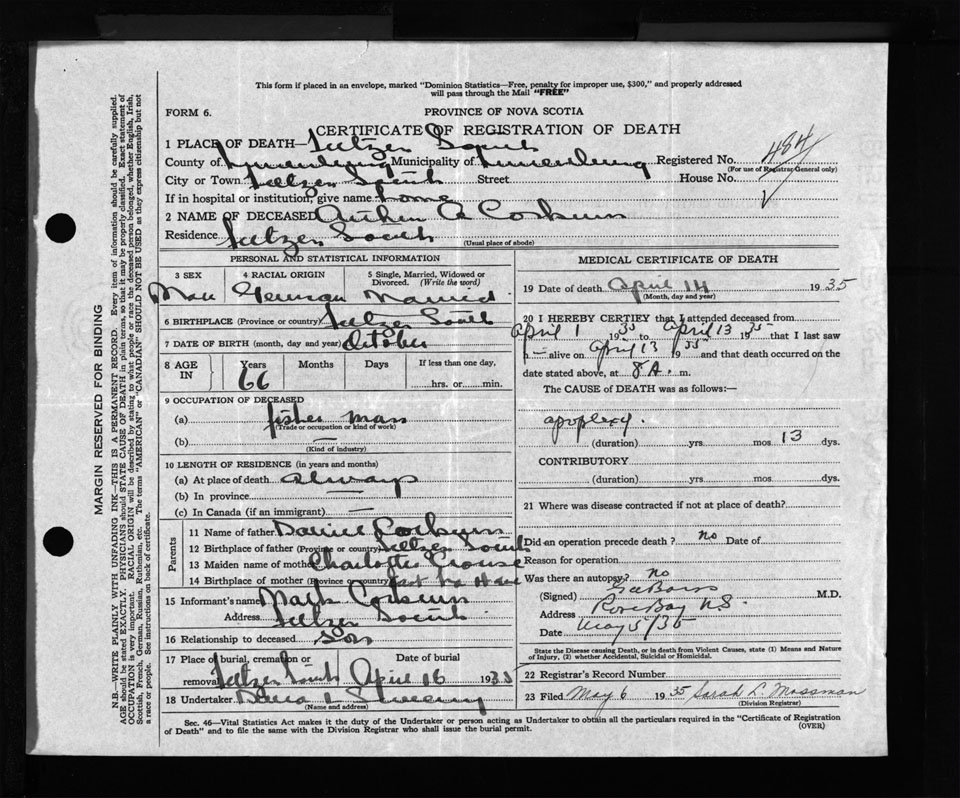 This form if placed in an envelope, marked "Dominion Statistics—Free, penalty for improper use, $300," and properly addressed
will pass through the Mail "FREE"
FORM 6.
PROVINCE OF NOVA SCOTIA
CERTIFICATE OF REGISTRATION OF DEATH
1 PLACE OF DEATH— Feltzen South
County of Lunenburg Municipality of Lunenburg Registered No. 484
(For use of Registrar General only)
City or Town Feltzen South Street House No.
If in hospital or institution, give name home
2 NAME OF DECEASED A Corkum
Residence Feltzen South
(Usual place of abode)
PERSONAL AND STATISTICAL INFORMATION
3 SEX
4 RACIAL ORIGIN
5 Single, Married, Widowed or Divorced. (Write the word)
Male German Married
6 BIRTHPLACE (Province or country) Feltzen South
7 DATE OF BIRTH (month, day and year) October
8 AGE IN Years Months Days If less than one day,
66 hrs. or min.
9 OCCUPATION OF DECEASED
(a) fisher man
(Trade or occupation or kind of work)
(b) —
(Kind of industry)
10 LENGTH OF RESIDENCE (in years and months)
(a) At place of death always
(b) In province —
(c) In Canada (if an immigrant) —
Parents
11 Name of father Daniel Corkum
12 Birthplace of father (Province or country) Feltzen South
13 Maiden name of mother Charlotte Crouse
14 Birthplace of mother (Province or country)
15 Informant's name Mark Corkum
Address Feltzen South
16 Relationship to deceased Son
17 Place of burial, cremation or removal Feltzen South
Date of burial April 16 1935
18 Undertaker
(Name and address)
MEDICAL CERTIFICATE OF DEATH
19 Date of death April 14 1935
(Month, day and year)
20 I HEREBY CERTIFY that I attended deceased from
April 1 1935 to April 13 1935 that I last saw
h— alive on April 13 1935 and that death occurred on
date stated above, at 8 A. m.
The CAUSE of DEATH was as follows:—
apoplexy.
(duration) yrs mos 13 dys.
CONTRIBUTORY
(duration) yrs. mos. dys.
21 Where was disease contracted if not at place of death?
Did an operation precede death? no Date of
Reason for operation
Was there an autopsy? no
(Signed) M.D.
Address Rose Bay N.S.
Date May 5/35
State the Disease causing Death, or in death from Violent Causes, state (1) Means and Nature
of Injury, (2) whether Accidental, Suicidal or Homicidal.
22 Registrar's Record Number
23 Filed May 6 1935 Sarah L Mossman
(Division Registrar)
Sec. 46—Vital Statistics Act makes it the duty of the Undertaker or person acting as Undertaker to obtain all the particulars required in the "Certificate of Registration
of Death" and to file the same with the Division Registrar who shall issue the burial permit.
(OVER)
MARGIN RESERVED FOR BINDING
N.B.—WRITE PLAINLY WITH UNFADING INK—THIS IS A PERMANENT RECORD. Every item of information should be carefully supplied.
AGE should be stated EXACTLY. PHYSICIANS should STATE CAUSE OF DEATH in plain terms, so that it may be properly classified. Exact statement of
OCCUPATION is very important. RACIAL ORIGIN will be described by stating to what people or race the deceased person belonged, whether English, Irish,
Scottish, French, German, Russian, Ruthenian, etc. The terms "AMERICAN" or "CANADIAN" SHOULD NOT BE USED as they express citizenship but not
a race or people. See instructions on back of certificate.